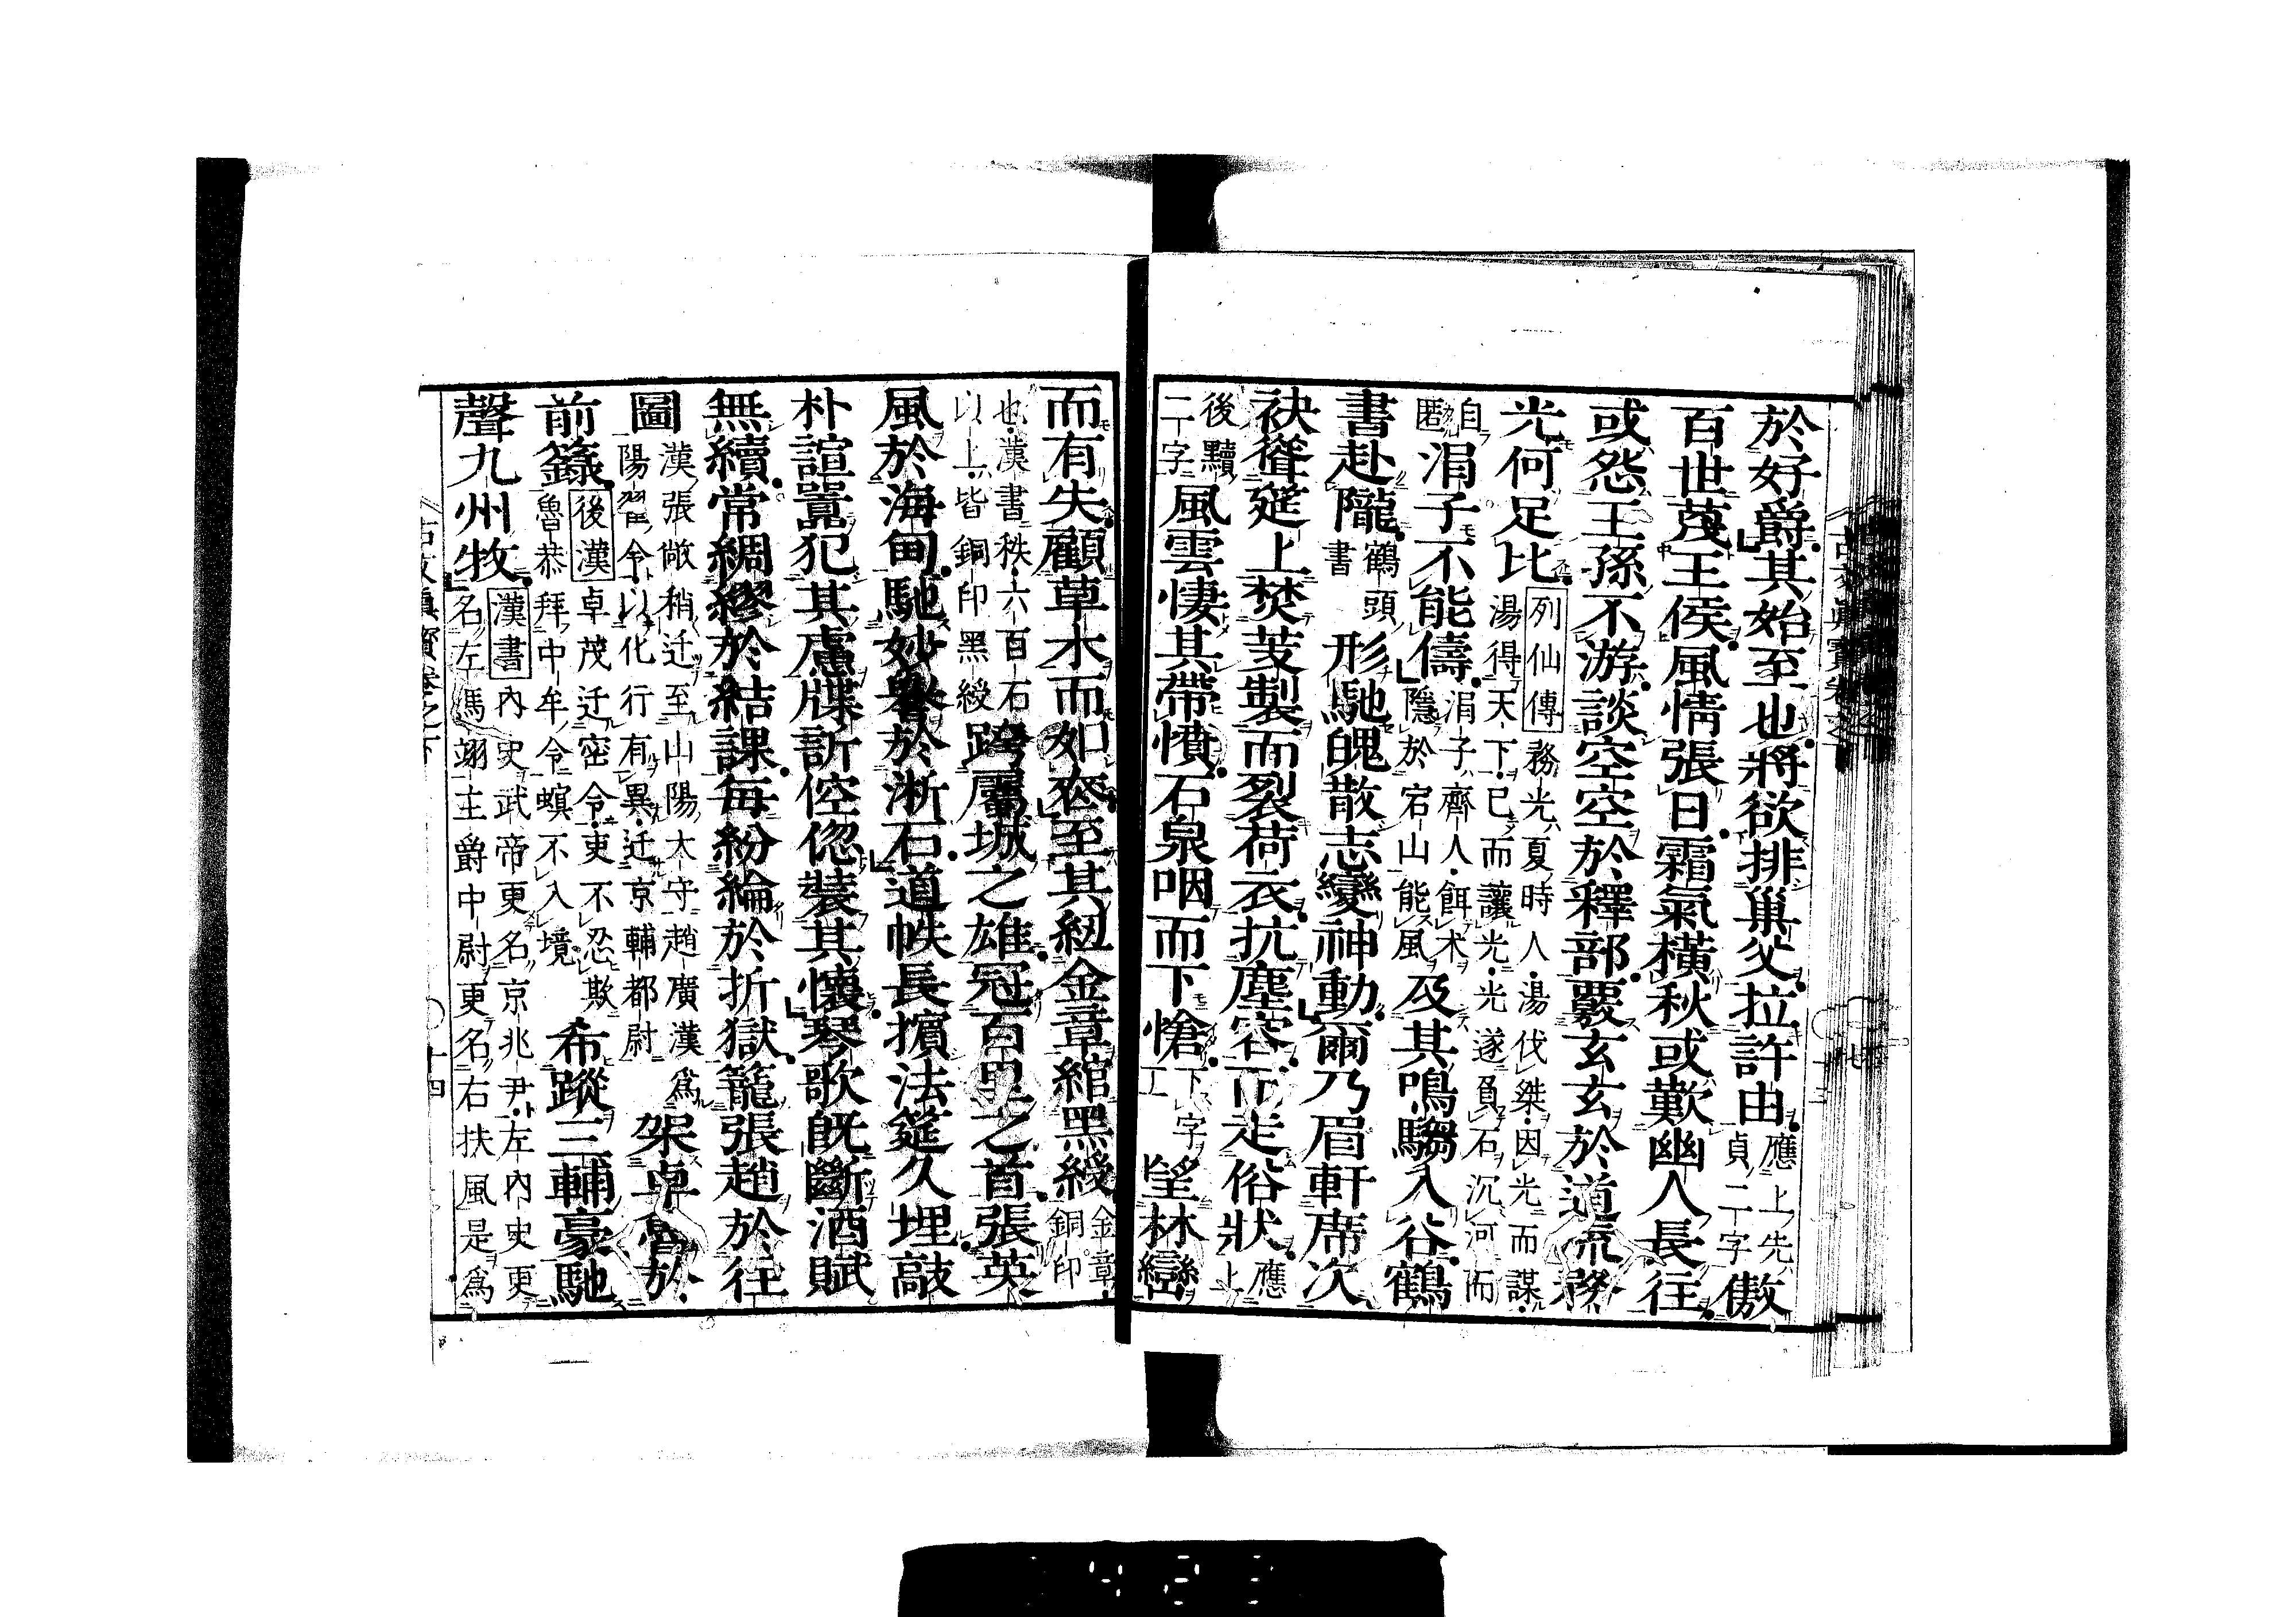 於好爵其始至也將欲排巢父拉許由應上先貞二字傲
百世蔑王侯風情張日霜氣橫秋或歎幽人長往
或怨王孫不游談空空於釋部覈玄玄於道流務
光何足比列仙傳務光夏時人湯伐桀因光而謀湯得天下已而讓光光遂負石沉河而
自匿涓子不能儔涓子齊人餌术隱於宕山能風及其鳴騶入谷鶴
書赴隴鶴頭書形馳魄散志變神動爾乃眉軒席次
袂聳筵上焚芰製而裂荷衣抗塵容而走俗狀應上
後黷二字風雲悽其帶憤石泉咽而下愴下字工望林巒
而有失顧草木而如喪至其紐金章綰黑綬金章銅印
也漢書秩六百石以上皆銅印黑綬跨屬城之雄冠百里之首張英
風於海甸馳妙譽於淅石道帙長擯法筵久埋敲
朴諠囂犯其慮牒訴倥偬裝其懷琴歌既斷酒賦
無續常綢繆於結課每紛綸於折獄籠張趙於往
圖漢張敞稍迁至山陽太守趙廣漢為陽翟令以化行有異迁京輔都尉架卓魯於
前籙後漢卓茂迁密令吏不忍欺魯恭拜中牟令螟不入境希蹤三輔豪馳
聲九州牧漢書內史武帝更名京兆尹左內史更名左馮翊主爵中尉更名右扶風是為
古文眞寳卷之下
十四